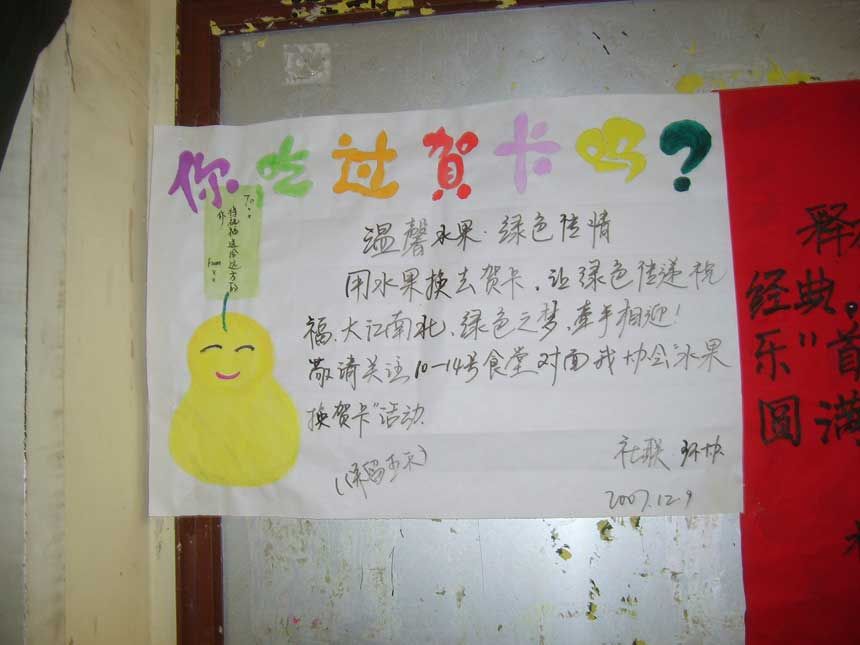 你吃过贺卡吗?
To:
你
将祝福送给远方的
From
温馨水果·绿色传情
用水果换去贺卡,让绿色传递祝
福、大江南北,绿色之梦,牵手相迎!
敬请关注10-14号食堂对面我协会"水果
换贺卡"活动.
社联 环协
(保留至末)
2007.12.9
释
经典,
乐"首
圆满